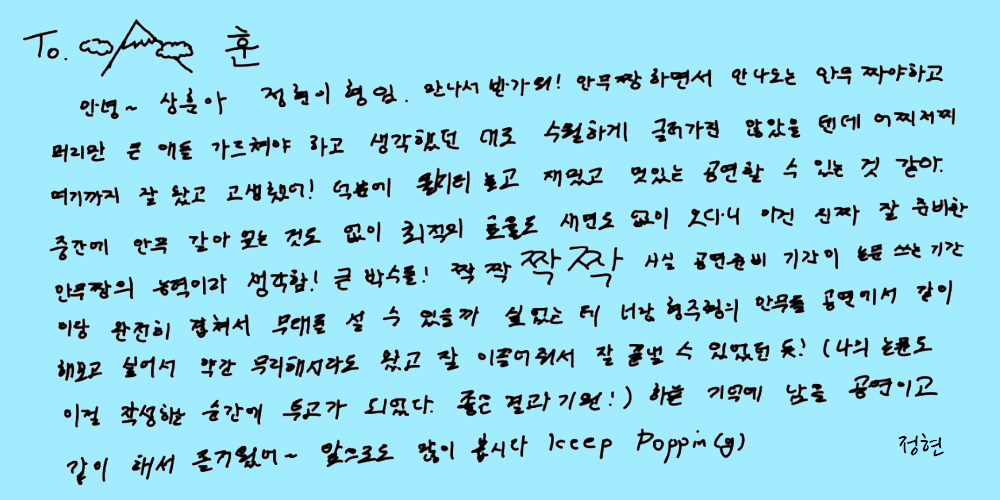 To. 훈
안녕~ 상훈아 정현이형임. 만나서 반가워! 안무짱하면서 안나오는 안무 짜야하고
머리만 큰 애들 가르쳐야 하고 생각했던 대로 수월하게 굴러가진 않았을 텐데 어찌저찌
여기까지 잘 왔고 고생했어! 덕분에 퀄리티 높고 재밌고 멋있는 공연할 수 있는 것 같아.
중간에 안무 갈아 엎는 것도 없이 최적의 효율로 새면도 없이 오다니 이건 진짜 잘 준비한
안무짱의 능력이라 생각함! 큰 박수를! 짝 짝 짝 짝 사실 공연준비 기간이 논문 쓰는 기간
이랑 완전히 겹쳐서 무대를 설 수 있을까 싶었는데 너랑 형주형의 안무를 공연에서 같이
해보고 싶어서 약간 무리해서라도 왔고 잘 이끌어줘서 잘 끝낼 수 있었던 듯! (나의 논문도
이걸 작성하는 순간에 투고가 되었다. 좋은 결과 기원!) 하는 기억에 남을 공연이고
같이 해서 즐거웠어~ 앞으로도 많이 봅시다 keep Poppin(g)
정현